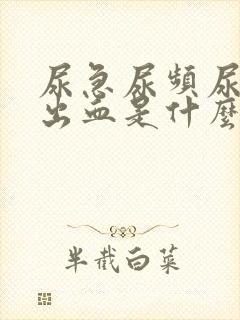 尿急尿頻尿
出血是什麼
半截白菜